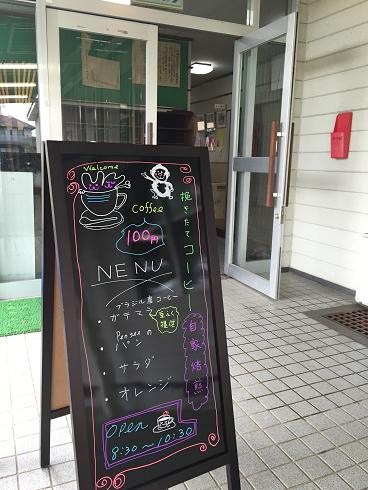 Welcome
coffee
100円
挽きたてコーヒー
自家焙煎
NENU
ブラジル産コーヒー
・ガテマラ
Penseeの
パン
・サラダ
・オレンジ
OPEN
8:30～10:30